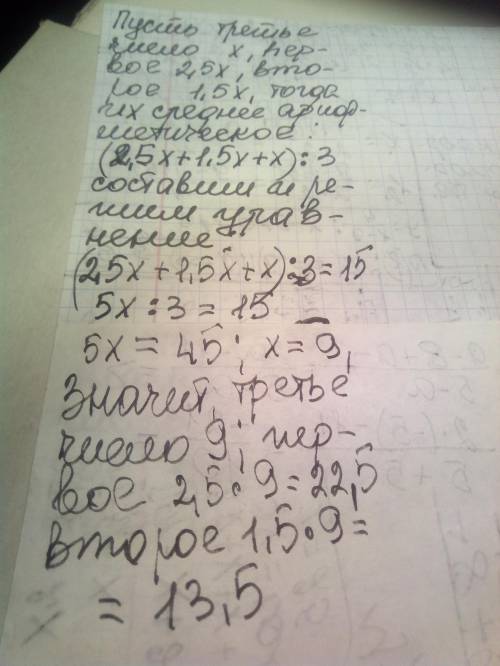 Пусть третье
число x, пер-
вое 2,5x, вто-
рое 1,5x, тогда
их среднее ариф-
метическое:
(2,5x+1,5x+x):3
составим и ре-
шим урав-
нение
(2,5x+1,5x+x):3=15
5x:3=15
5x=45; x=9,
значит, третье
число 9; пер-
вое 2,5•9=22,5
второе 1,5•9=
=13,5